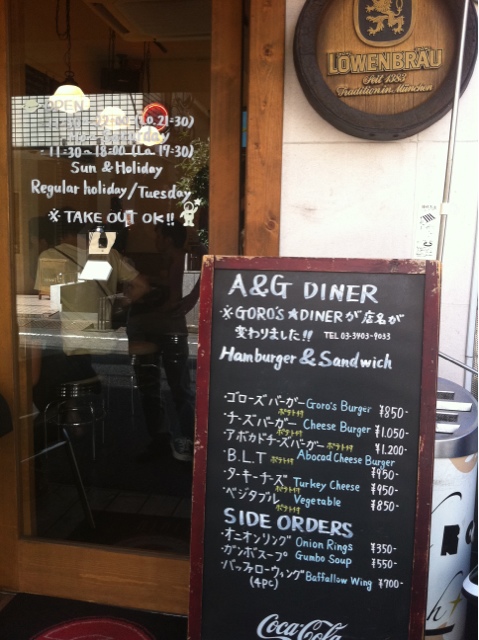 LÖWENBRÄU
Seit 1383
Tradition in München
OPEN
22:00 (Lo.21:30)
11:30-18:00 (Lo.17:30)
Sun & Holiday
Regular holiday/Tuesday
※ TAKE OUT OK!!
A&G DINER
※GORO'S★DINERが店名が
変わりました!! TEL 03-3903-9033
Hamburger & Sandwich
・ゴローズバーガー Goro's Burger ¥850-
ポテト付
・チーズバーガー Cheese Burger ¥1.050-
ポテト付
・アボカドチーズバーガー ポテト付 ¥1.200-
・B.L.T ポテト付 Abocad Cheese Burger
¥950-
・ターキーチーズ Turkey Cheese ¥950-
ポテト付
・ベジタブル Vegetable ¥850-
ポテト付
SIDE ORDERS
・オニオンリング Onion Rings ¥350-
・ガンボスープ Gumbo Soup ¥550-
・バッファローウィング Baffallow Wing ¥700-
(4PC)
Coca-Cola